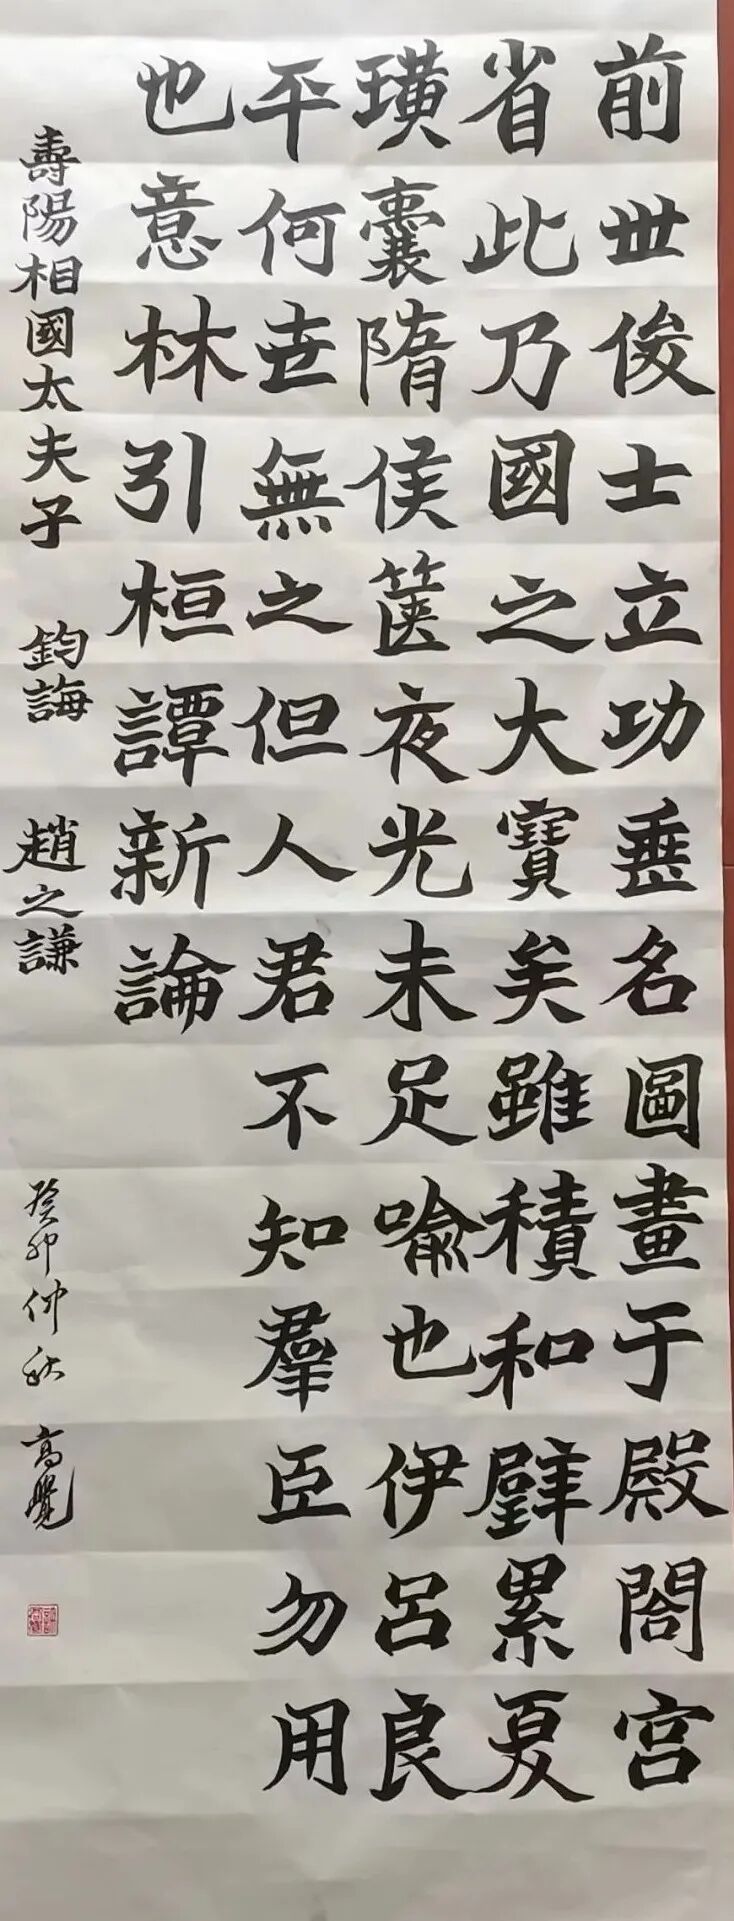 前世俊士立功垂名圖畫于殿閣宮
省此乃國之大寶矣雖積和璧累夏
璜囊隋侯篋夜光未足喻也伊呂良
平何世無之但人君不知羣臣勿用
也意林引桓譚新論
壽陽相國太夫子 鈞誨 趙之謙
癸卯仲秋 高覺